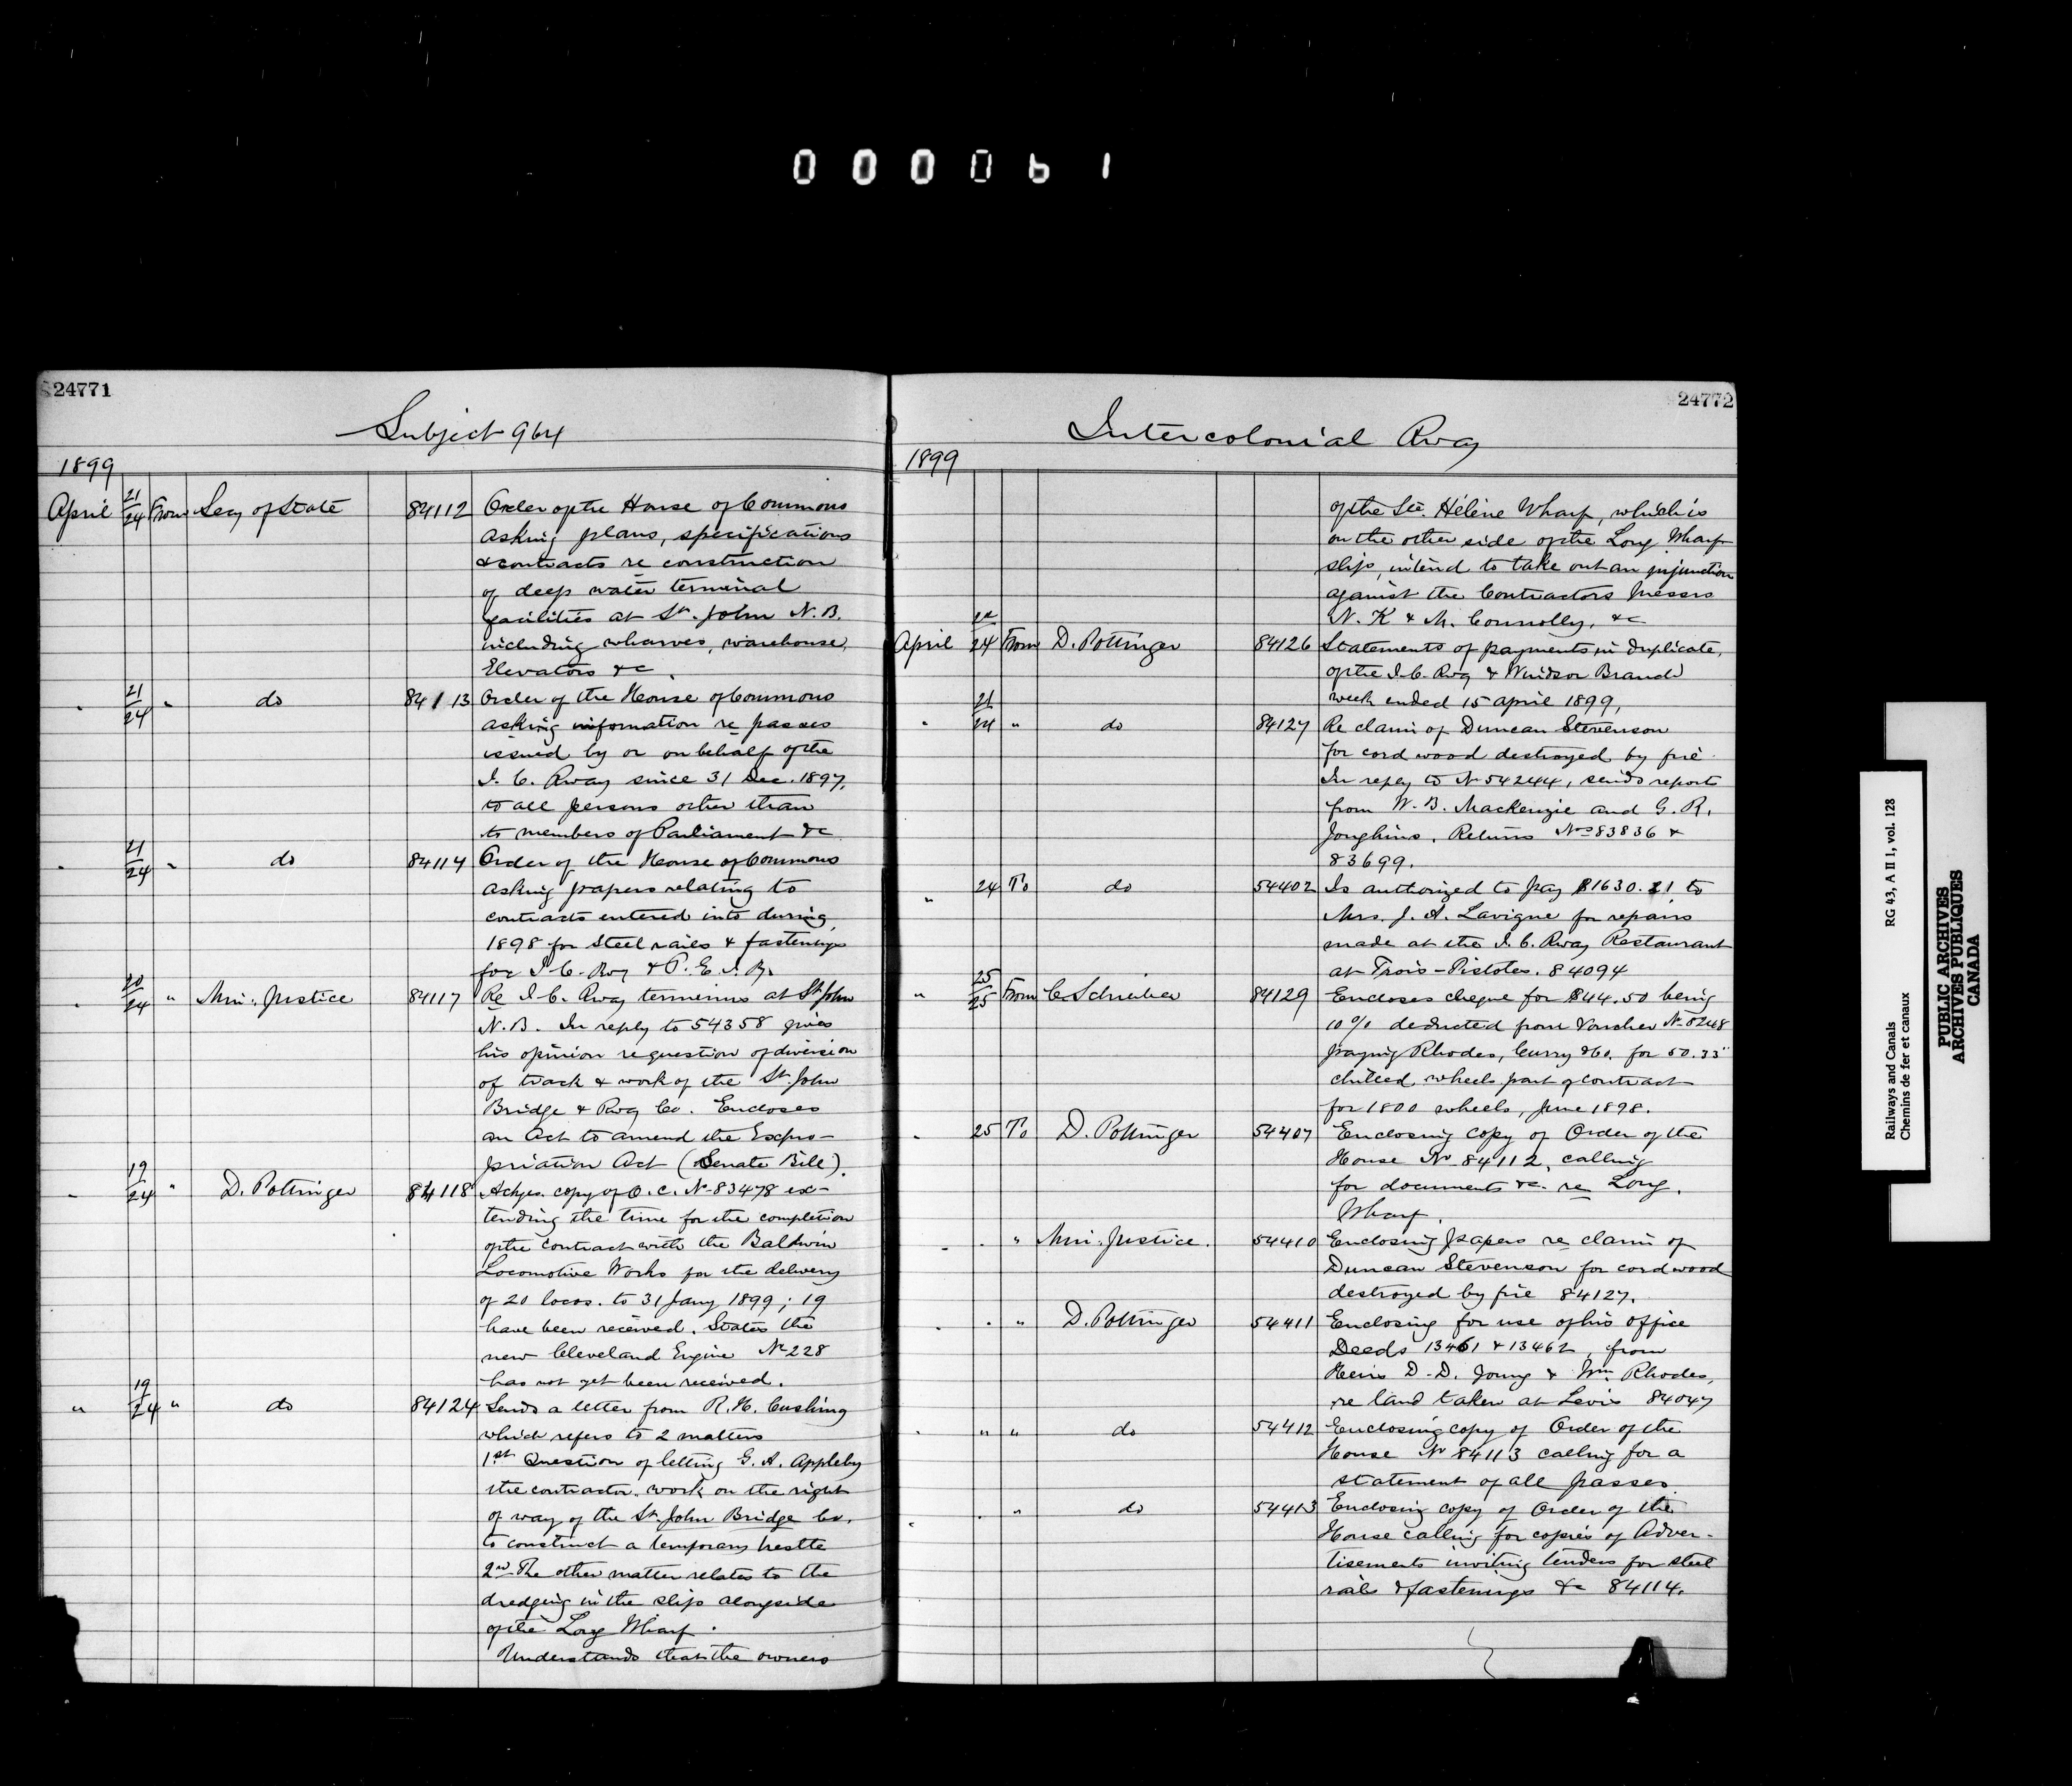 000061
24771
Subject 964
1899
April 21/24 From Secy of State 84112 Order of the House of Commons
asking plans, specifications
& contracts re construction
of deep water terminal
facilities at St. John N.B.
including wharves, warehouse,
Elevators &c.
" 21/24 " do 84113 Order of the House of Commons
asking information re passes
issued by or on behalf of the
I. C. Rway since 31 Dec. 1897,
to all persons other than
to members of Parliament &c
" 21/24 " do 84114 Order of the House of Commons
asking papers relating to
contracts entered into during
1898 for steel rails & fastenings
for I. C. Rwy & P. E. I. Ry.
" 20/24 " Min. Justice 84117 Re I. C. Rway terminus at St John
N.B. In reply to 54358 gives
his opinion re question of diversion
of track & work of the St. John
Bridge & Rwy Co. Encloses
an Act to amend the Expro-
priation Act (Senate Bill).
" 19/24 " D. Pottinger 84118 Ackges. copy of O.C. No 83478 ex-
tending the time for the completion
of the contract with the Baldwin
Locomotive Works for the delivery
of 20 locos. to 31 Jany 1899; 19
have been received. States the
new Cleveland Engine No 228
has not yet been received.
" 19/24 " do 84124 Sends a letter from R. H. Cushing
which refers to 2 matters
1st Question of letting G. A. Appleby
the contractor work on the right
of way of the St. John Bridge Co.
to construct a temporary trestle
2nd The other matter relates to the
dredging in the slip alongside
of the Long Wharf.
Understands that the owners
24772
Intercolonial Rway
1899
of the Ste. Hélène Wharf, which is
on the other side of the Long Wharf
slip, intend to take out an injunction
against the Contractors Messrs
N. K & M. Connolly, &c
April 22/24 From D. Pottinger 84126 Statements of payments in duplicate,
of the I. C. Rwy & Windsor Branch
week ended 15 April 1899,
" 21/24 " do 84127 Re claim of Duncan Stevenson
for cord wood destroyed by fire
In reply to No 54244, sends report
from W. B. Mackenzie and G. R.
Joughins. Returns Nos 83836 &
83699.
" 24 To do 54402 Is authorized to pay $1630.21 to
Mrs. J. A. Lavigne for repairs
made at the I. C. Rway Restaurant
at Trois-Pistoles. 84094
" 25/25 From C. Schreiber 84129 Encloses cheque for $44.50 being
10% deducted from Voucher No 8248
paying Rhodes, Curry & Co. for 50. 33"
chilled wheels part of contract
for 1800 wheels, June 1898.
" 25 To D. Pottinger 54407 Enclosing copy of Order of the
House No 84112, calling
for documents &c. re Long
Wharf.
" " " Min. Justice. 54410 Enclosing papers re claim of
Duncan Stevenson for cordwood
destroyed by fire 84127.
" " " D. Pottinger 54411 Enclosing for use of his office
Deeds 13461 & 13462, from
Heirs D. D. Young & Wm. Rhodes,
re land taken at Levis 84047
" " " do 54412 Enclosing copy of Order of the
House No 84113 calling for a
statement of all passes.
" " " do 54413 Enclosing copy of Order of the
House calling for copies of Adver-
tisements inviting tenders for steel
rails & fastenings &c 84114.
Railways and Canals RG 43, A II 1, vol. 128
Chemins de fer et canaux
PUBLIC ARCHIVES
ARCHIVES PUBLIQUES
CANADA